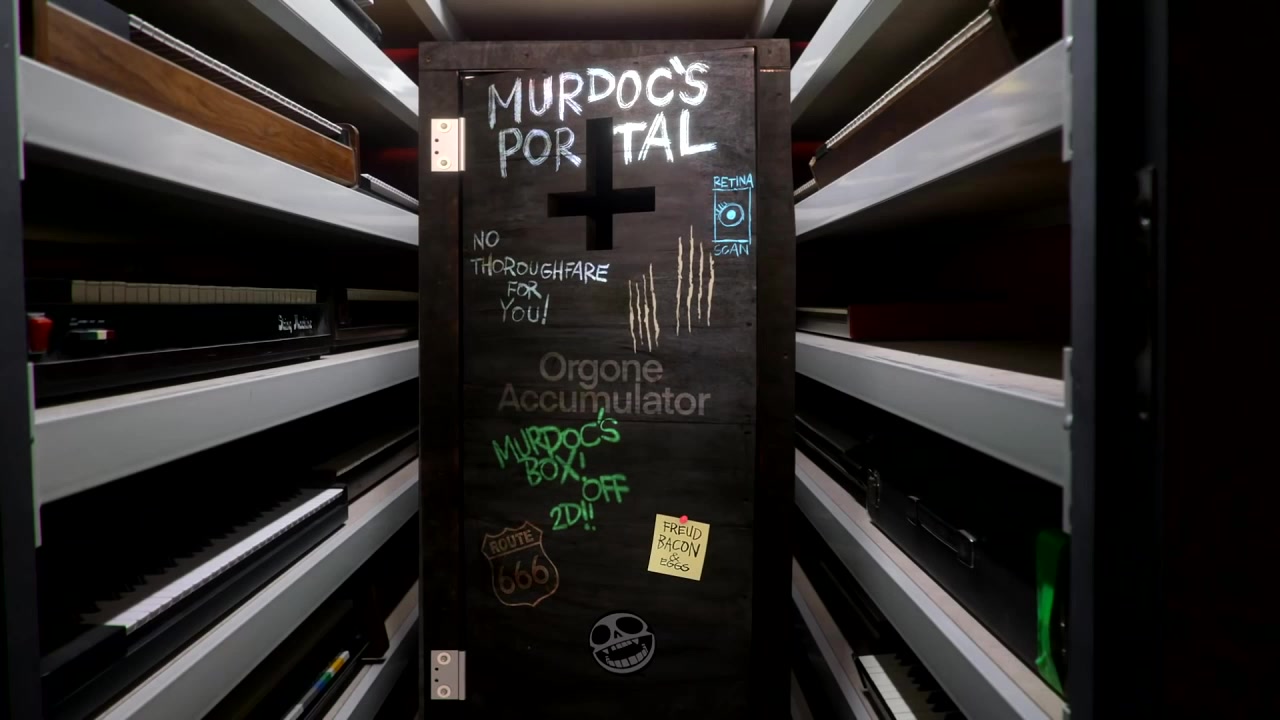 MURDOC'S
PORTAL
RETINA
SCAN
NO
THOROUGHFARE
FOR
YOU!
Orgone
Accumulator
MURDOC'S
BOX!
OFF
2D!!
FREUD
BACON
&
EGGS
ROUTE
666